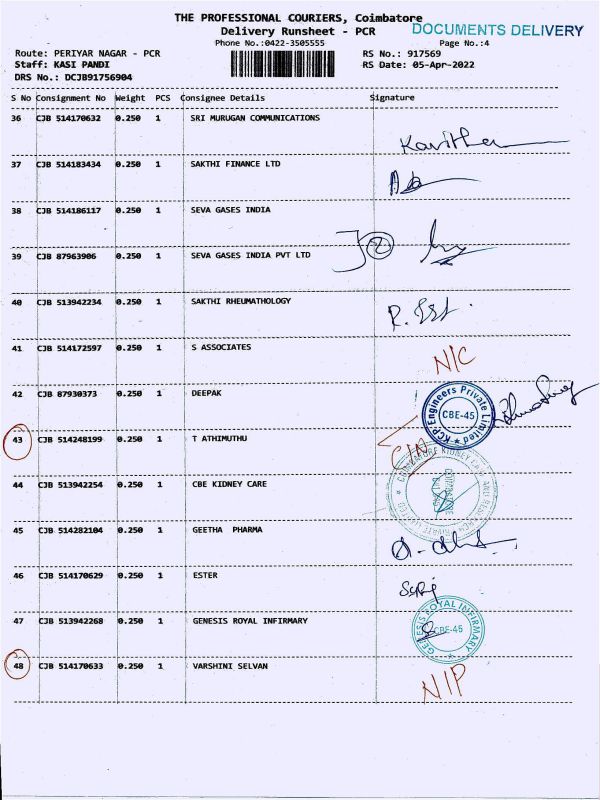 THE PROFESSIONAL COURIERS, Coimbatore
Delivery Runsheet - PCR
DOCUMENTS DELIVERY
Phone No.:0422-3505555
Page No.:4
Route: PERIYAR NAGAR - PCR
RS No.: 917569
Staff: KASI PANDI
RS Date: 05-Apr-2022
DRS No.: DCJB91756904
S No Consignment No Weight PCS Consignee Details Signature
36 CJB 514170632 0.250 1 SRI MURUGAN COMMUNICATIONS
Kavitha
37 CJB 514183434 0.250 1 SAKTHI FINANCE LTD
38 CJB 514186117 0.250 1 SEVA GASES INDIA
2
39 CJB 87963906 0.250 1 SEVA GASES INDIA PVT LTD
40 CJB 513942234 0.250 1 SAKTHI RHEUMATHOLOGY
41 CJB 514172597 0.250 1 S ASSOCIATES
N/C
42 CJB 87930373 0.250 1 DEEPAK
KCP Engineers Private Limited
CBE-45
43 CJB 514248199 0.250 1 T ATHIMUTHU
44 CJB 513942254 0.250 1 CBE KIDNEY CARE
45 CJB 514282104 0.250 1 GEETHA PHARMA
46 CJB 514170629 0.250 1 ESTER
47 CJB 513942268 0.250 1 GENESIS ROYAL INFIRMARY
GENESIS ROYAL INFIRMARY
CBE-45
48 CJB 514170633 0.250 1 VARSHINI SELVAN
N/P